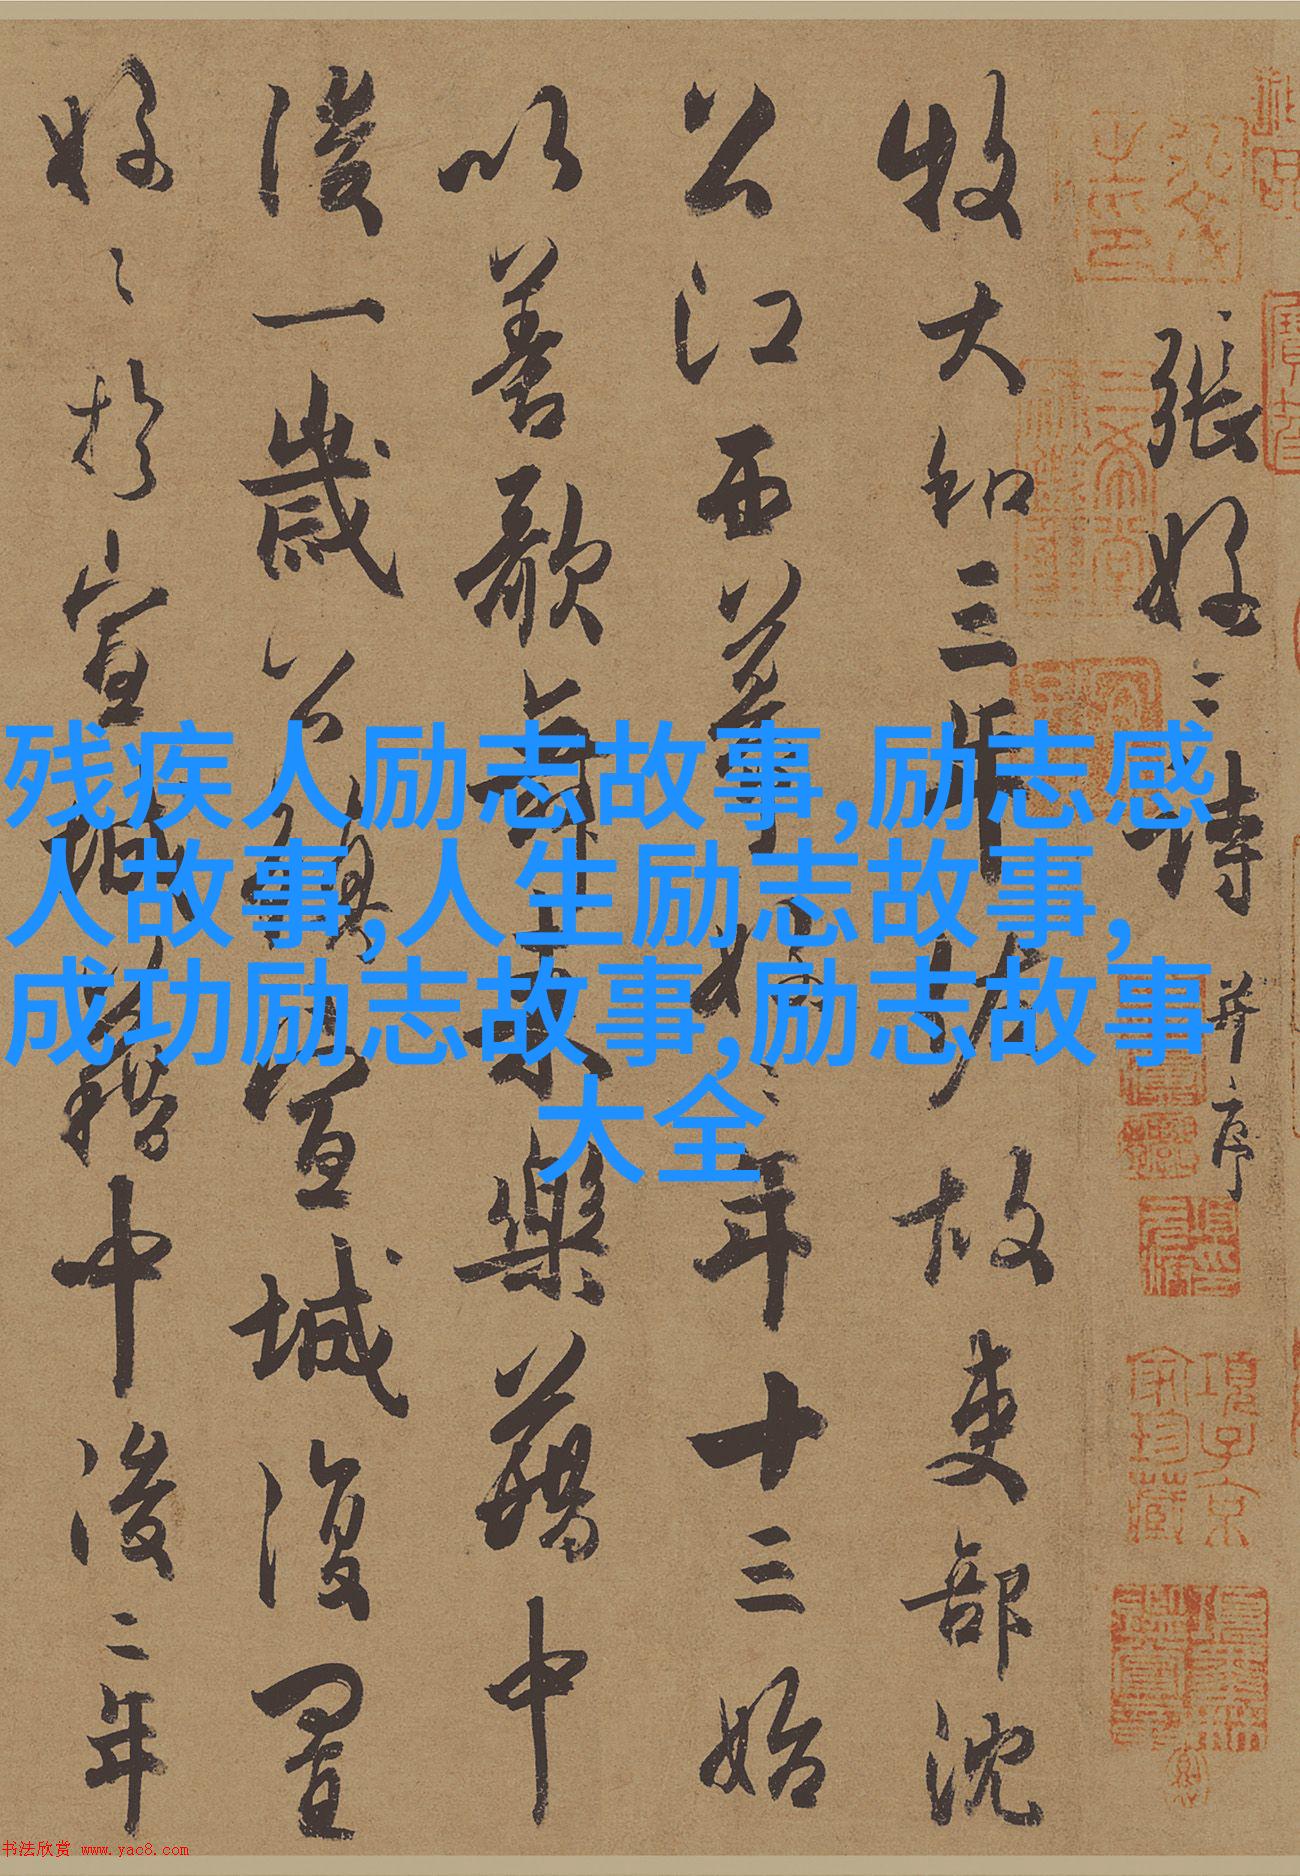 張好〻詩 并序
牧大和三年佐故吏部沈
公江西幕好〻年十三始
以善歌舞來樂籍中
後一歲公鎮宣城復置
好〻於宣城籍中後二年
残疾人励志故事,励志感
人故事,人生励志故事,
成功励志故事,励志故事
大全
项子京家珍藏
书法欣赏 www.yac8.com